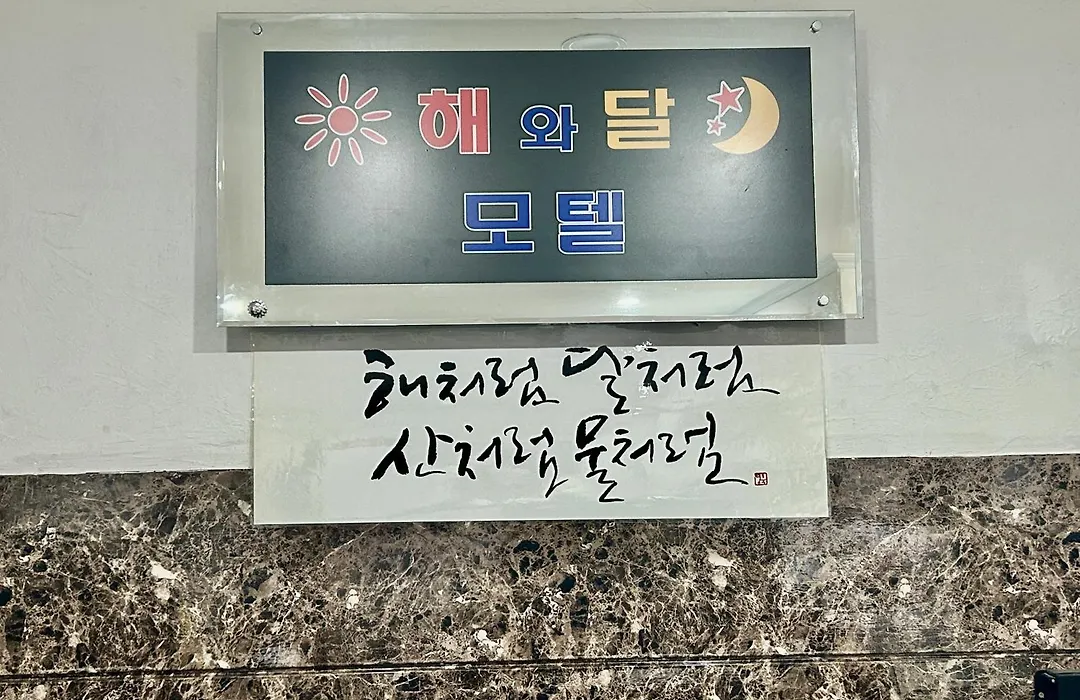 해와달
모텔
해처럼 달처럼
산처럼 물처럼